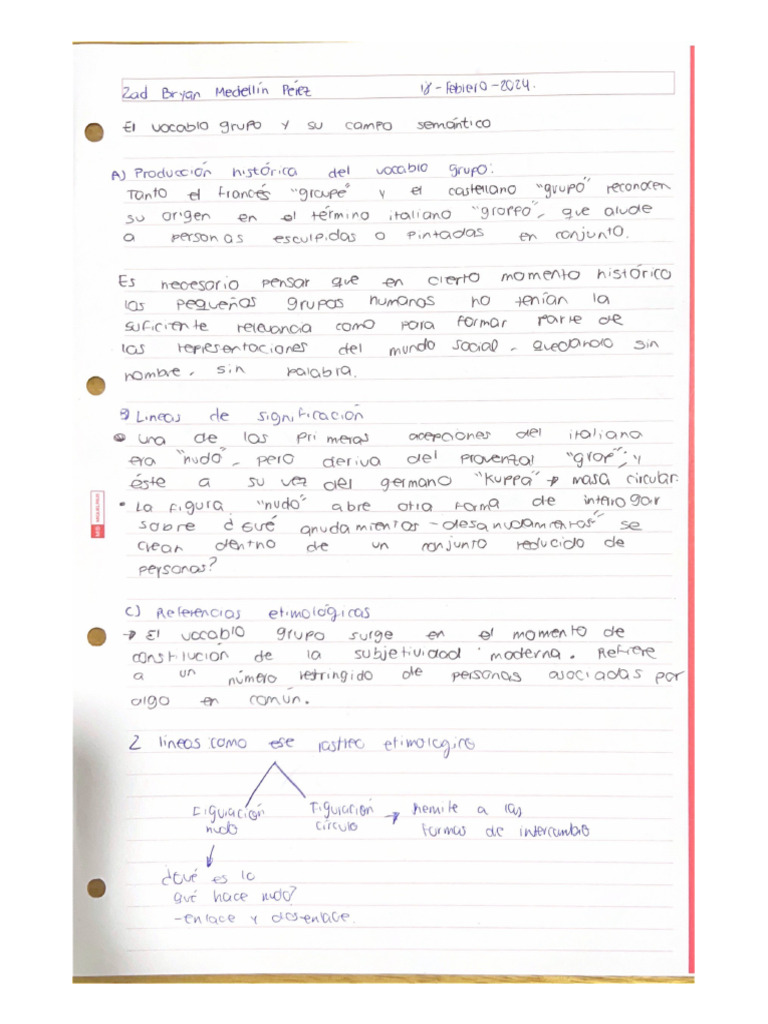 Zad Bryan Medellín Pérez 18-Febrero-2024.
El vocablo grupo y su campo semántico
A) Producción histórica del vocablo grupo:
Tanto el francés "groupe" y el castellano "grupo" reconocen
su origen en el término italiano "groppo", que alude
a personas esculpidas o pintadas en conjunto.
Es necesario pensar que en cierto momento histórico
los pequeños grupos humanos no tenían la
suficiente relevancia como para formar parte de
las representaciones del mundo social, quedando sin
nombre, sin palabra.
B) Lineas de significación
Una de las primeras acepciones del italiano
era "nudo", pero deriva del provenzal "grop"; y
éste a su vez del germano "kuppa" → masa circular.
• La figura "nudo" abre otra forma de interrogar
sobre ¿Qué anudamientos-desanudamientos" se
crean dentro de un conjunto reducido de
personas?
C) Referencias etimológicas
→ El vocablo grupo surge en el momento de
constitución de la subjetividad moderna. Refiere
a un número restringido de personas asociadas por
algo en común.
2 lineas como ese rastreo etimologico
Figuración nudo
Figuración círculo → Remite a las formas de intercambio
¿Qué es lo
qué hace nudo?
-enlace y desenlace.